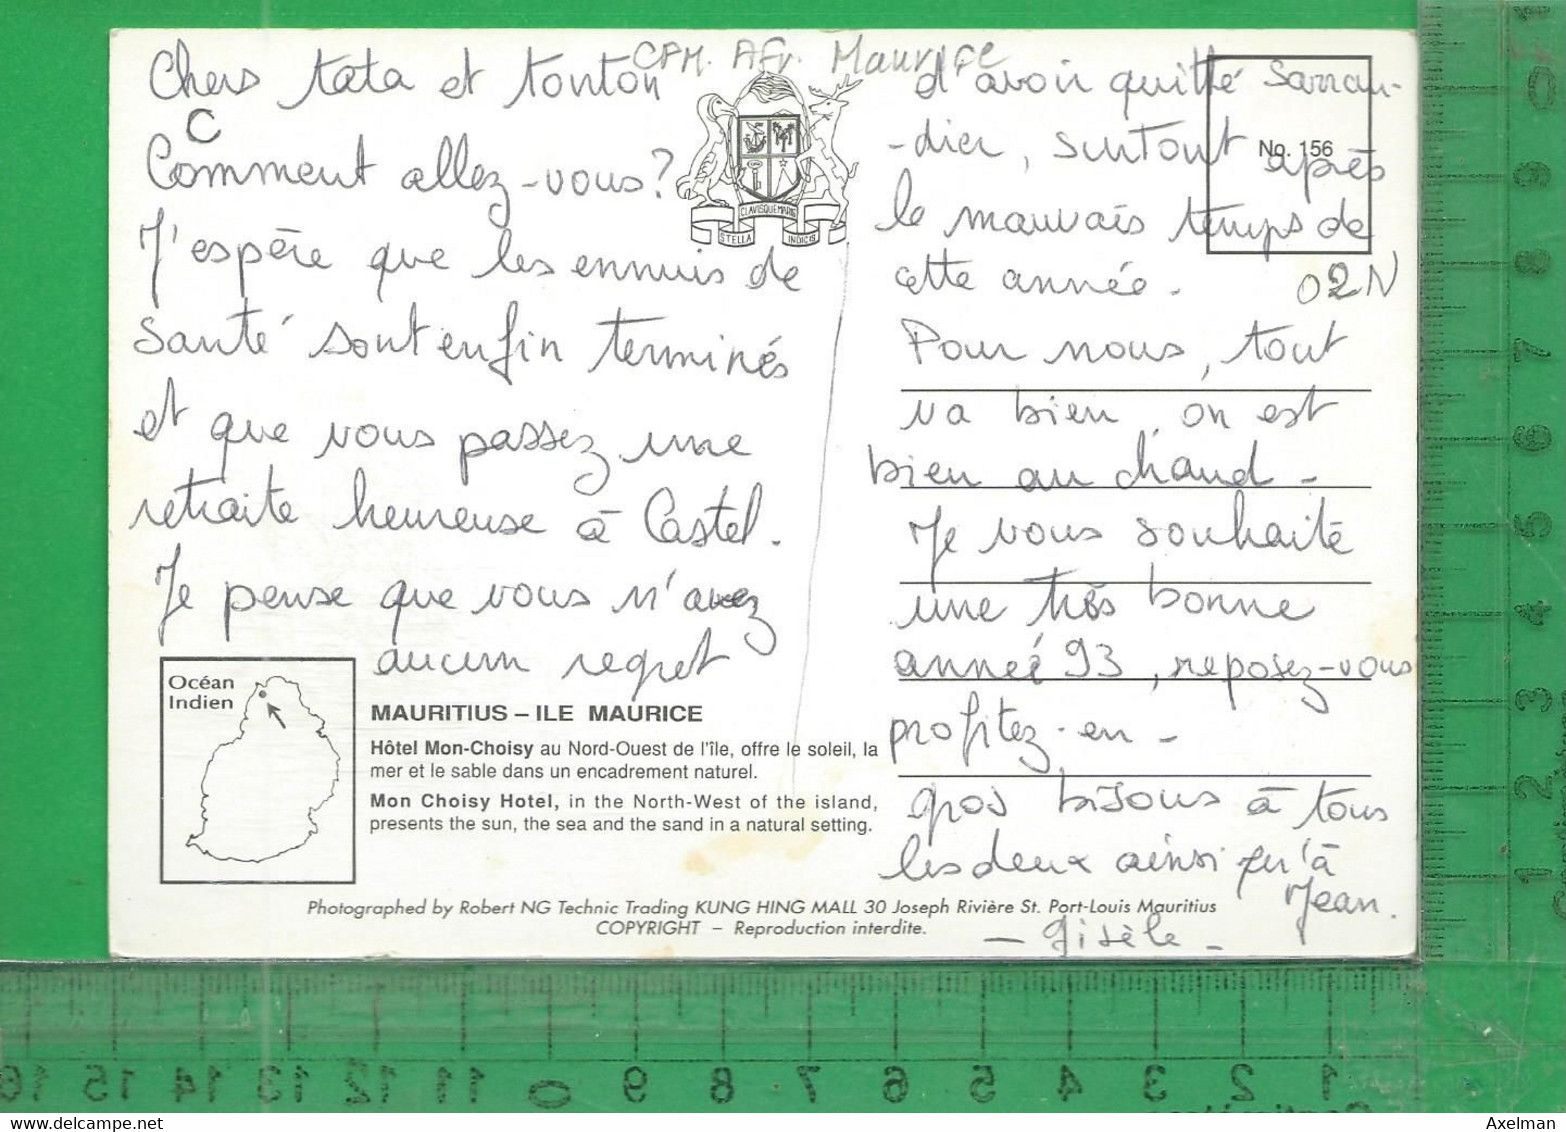 CPM. Afr. Maurice
Chers tata et tonton
C
Comment allez-vous?
J'espère que les ennuis de
santé sont enfin terminés
et que vous passez une
retraite heureuse à Castel.
Je pense que vous n'avez
aucun regret
CLAVISQUE MARIS
STELLA
INDICIS
d'avoir quitté Sarran-
-dier, surtout après
No. 156
le mauvais temps de
cette année.
02N
Pour nous, tout
va bien, on est
bien au chaud -
Je vous souhaite
une très bonne
année 93, reposez-vous
profitez-en -
gros bisous à tous
les deux ainsi qu'à
Jean.
- Gisèle -
Océan
Indien
MAURITIUS – ILE MAURICE
Hôtel Mon-Choisy au Nord-Ouest de l'île, offre le soleil, la
mer et le sable dans un encadrement naturel.
Mon Choisy Hotel, in the North-West of the island,
presents the sun, the sea and the sand in a natural setting.
Photographed by Robert NG Technic Trading KUNG HING MALL 30 Joseph Rivière St. Port-Louis Mauritius
COPYRIGHT – Reproduction interdite.
0 9 8 7 6 5 4 3 2 1
16 15 14 13 12 11 0 9 8 7 6 5 4 3 2 1
Axelman